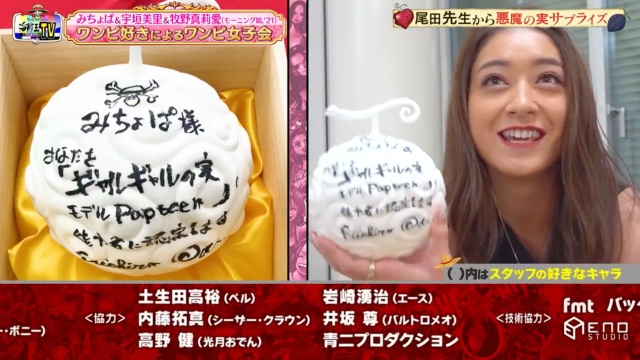 みちょぱ&宇垣美里&牧野真莉愛(モーニング娘。'21)
ワンピ好きによるワンピ女子会
尾田先生から悪魔の実サプライズ
みちょぱ様
あなたを
ギャルギャルの実
モデル Popteen
能力者に認定します
( )内はスタッフの好きなキャラ
ー・ボニー)
<協力>
土生田高裕(ベル)
内藤拓真(シーザー・クラウン)
高野 健(光月おでん)
岩崎湧治(エース)
井坂 尊(バルトロメオ)
青二プロダクション
<技術協力>
fmt バッ
ENO
STUDIO